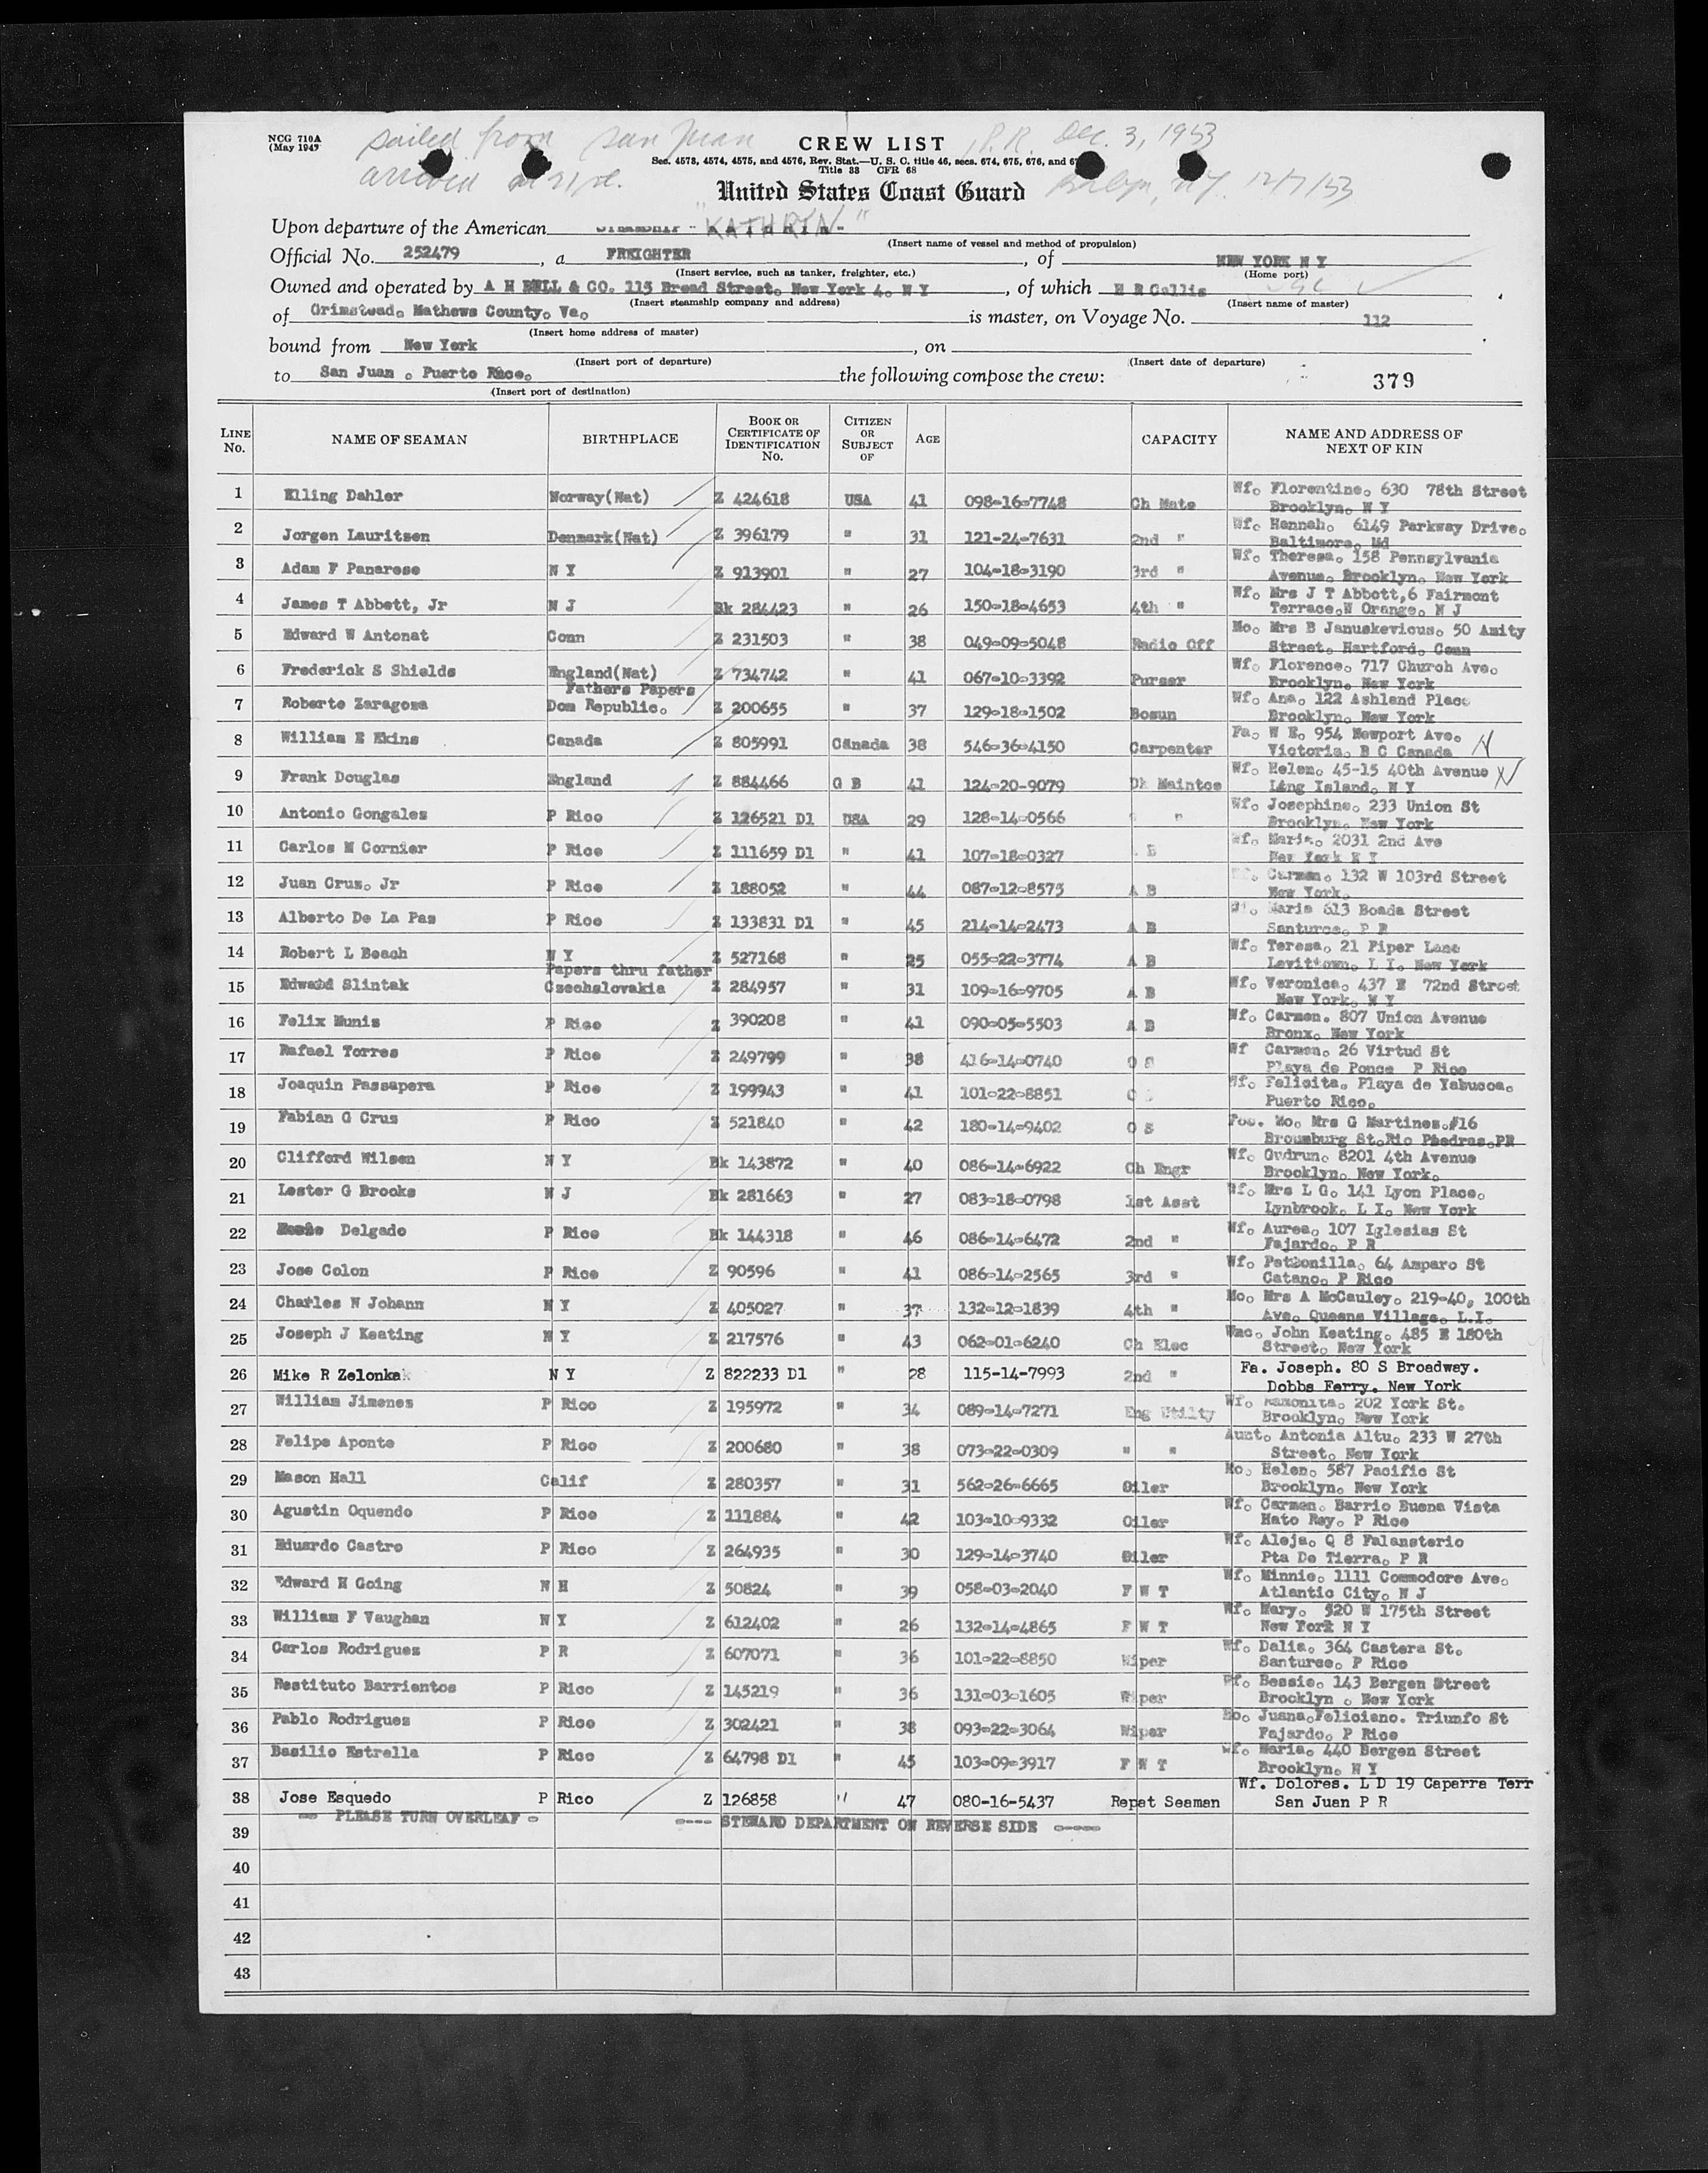 NCG 710A
(May 1947
sailed from San Juan P.R. Dec. 3, 1953
CREW LIST
Sec. 4573, 4574, 4575, and 4576, Rev. Stat.—U. S. C. title 46, secs. 674, 675, 676, and 67
Title 33 CFR 68
arrived N.Y. 12/7/53
United States Coast Guard
Upon departure of the American STEAMSHIP "KATHRYN"
(Insert name of vessel and method of propulsion)
Official No. 252479, a FREIGHTER, of NEW YORK N Y
(Insert service, such as tanker, freighter, etc.) (Home port)
Owned and operated by A H BULL & CO. 115 Broad Street. New York 4. N Y, of which H R Callis
(Insert steamship company and address) (Insert name of master)
of Grimstead. Mathews County. Va. is master, on Voyage No. 112
(Insert home address of master)
bound from New York, on
(Insert port of departure) (Insert date of departure)
to San Juan . Puerto Rico. the following compose the crew: 379
(Insert port of destination)
LINE No. NAME OF SEAMAN BIRTHPLACE BOOK OR CERTIFICATE OF IDENTIFICATION No. CITIZEN OR SUBJECT OF AGE CAPACITY NAME AND ADDRESS OF NEXT OF KIN
1 Elling Dahler Norway(Nat) Z 424618 USA 41 098-16-7748 Ch Mate Wf. Florentine. 630 78th Street
Brooklyn. N Y
2 Jorgen Lauritzen Denmark(Nat) Z 396179 " 31 121-24-7631 2nd " Wf. Hannah. 6149 Parkway Drive.
Baltimore. Md
3 Adam F Panarese N Y Z 913901 " 27 104-18-3190 3rd " Wf. Theresa. 158 Pennsylvania
Avenue. Brooklyn. New York
4 James T Abbott, Jr N J Bk 284423 " 26 150-18-4653 4th " Wf. Mrs J T Abbott,6 Fairmont
Terrace.W Orange. N J
5 Edward W Antonat Conn Z 231503 " 38 049-09-5048 Radio Off Mo. Mrs B Januskevicus. 50 Amity
Street. Hartford. Conn
6 Frederick S Shields England(Nat) Z 734742 " 41 067-10-3392 Purser Wf. Florence. 717 Church Ave.
Fathers Papers Brooklyn. New York
7 Roberto Zaragoza Dom Republic. Z 200655 " 37 129-18-1502 Bosun Wf. Ana. 122 Ashland Place
Brooklyn. New York
8 William E Ekins Canada Z 805991 Canada 38 546-36-4150 Carpenter Fa. W E. 954 Newport Ave.
Victoria. B C Canada
9 Frank Douglas England Z 884466 G B 41 124-20-9079 Dk Maintce Wf. Helen. 45-15 40th Avenue
Long Island. N Y
10 Antonio Gongales P Rico Z 126521 D1 USA 29 128-14-0566 " Wf. Josephine. 233 Union St
Brooklyn. New York
11 Carlos M Cornier P Rico Z 111659 D1 " 41 107-18-0327 A B Wf. Maria. 2031 2nd Ave
New York N Y
12 Juan Cruz. Jr P Rico Z 188052 " 44 087-12-8575 A B Wf. Carmen. 132 W 103rd Street
New York.
13 Alberto De La Paz P Rico Z 133831 D1 " 45 214-14-2473 A B Wf. Maria 613 Boada Street
Santurce. P R
14 Robert L Beach N Y Z 527168 " 25 055-22-3774 A B Wf. Teresa. 21 Piper Lane
Papers thru father Levittown. L I. New York
15 Edward Slintak Czechslovakia Z 284957 " 31 109-16-9705 A B Wf. Veronica. 437 E 72nd Street
New York. N Y
16 Felix Muniz P Rico Z 390208 " 41 090-05-5503 A B Wf. Carmen. 807 Union Avenue
Bronx. New York
17 Rafael Torres P Rico Z 249799 " 38 416-14-0740 O S Wf Carmen. 26 Virtud St
Playa de Ponce P Rico
18 Joaquin Passapera P Rico Z 199943 " 41 101-22-8851 O S Wf. Felicita. Playa de Yabucoa.
Puerto Rico.
19 Fabian G Cruz P Rico Z 521840 " 42 180-14-9402 O S Fos. Mo. Mrs G Martinez.#16
Broumburg St.Rio Piedras.PR
20 Clifford Wilsen N Y Bk 143872 " 40 086-14-6922 Ch Engr Wf. Gudrun. 8201 4th Avenue
Brooklyn. New York.
21 Lester G Brooks N J Bk 281663 " 27 083-18-0798 1st Asst Wf. Mrs L G. 141 Lyon Place.
Lynbrook. L I. New York
22 Delgado P Rico Bk 144318 " 46 086-14-6472 2nd " Wf. Aurea. 107 Iglesias St
Fajardo. P R
23 Jose Colon P Rico Z 90596 " 41 086-14-2565 3rd " Wf. Petronilla. 64 Amparo St
Catano. P Rico
24 Charles N Johann N Y Z 405027 " 37 132-12-1839 4th " Mo. Mrs A McCauley. 219-40, 100th
Ave. Queens Village. L.I.
25 Joseph J Keating N Y Z 217576 " 43 062-01-6240 Ch Elec Unc. John Keating. 485 E 180th
Street. New York
26 Mike R Zelonka N Y Z 822233 D1 " 28 115-14-7993 2nd " Fa. Joseph. 80 S Broadway.
Dobbs Ferry. New York
27 William Jimenes P Rico Z 195972 " 34 089-14-7271 Eng Utilty Wf. Ramonita. 202 York St.
Brooklyn. New York
28 Felipe Aponte P Rico Z 200680 " 38 073-22-0309 " " Aunt. Antonia Altu. 233 W 27th
Street. New York
29 Mason Hall Calif Z 280357 " 31 562-26-6665 Oiler Mo. Helen. 587 Pacific St
Brooklyn. New York
30 Agustin Oquendo P Rico Z 111884 " 42 103-10-9332 Oiler Wf. Carmen. Barrio Buena Vista
Hato Rey. P Rico
31 Eduardo Castro P Rico Z 264935 " 30 129-14-3740 Oiler Wf. Aleja. Q 8 Falansterio
Pta De Tierra. P R
32 Edward H Going N H Z 50824 " 39 058-03-2040 F W T Wf. Minnie. 1111 Commodore Ave.
Atlantic City. N J
33 William F Vaughan N Y Z 612402 " 26 132-14-4865 F W T Wf. Mary. 520 W 175th Street
New York N Y
34 Carlos Rodriguez P R Z 607071 " 36 101-22-8850 Wiper Wf. Dalia. 364 Castera St.
Santurce. P Rico
35 Restituto Barrientos P Rico Z 145219 " 36 131-03-1605 Wiper Wf. Bessie. 143 Bergen Street
Brooklyn . New York
36 Pablo Rodriguez P Rico Z 302421 " 38 093-22-3064 Wiper Mo. Juana.Feliciano. Triunfo St
Fajardo. P Rico
37 Basilio Estrella P Rico Z 64798 D1 " 45 103-09-3917 F W T Wf. Maria. 440 Bergen Street
Brooklyn. N Y
38 Jose Esquedo P Rico Z 126858 " 47 080-16-5437 Repat Seaman Wf. Dolores. L D 19 Caparra Terr
San Juan P R
-- PLEASE TURN OVERLEAF - ---- STEWARD DEPARTMENT ON REVERSE SIDE -----
39
40
41
42
43